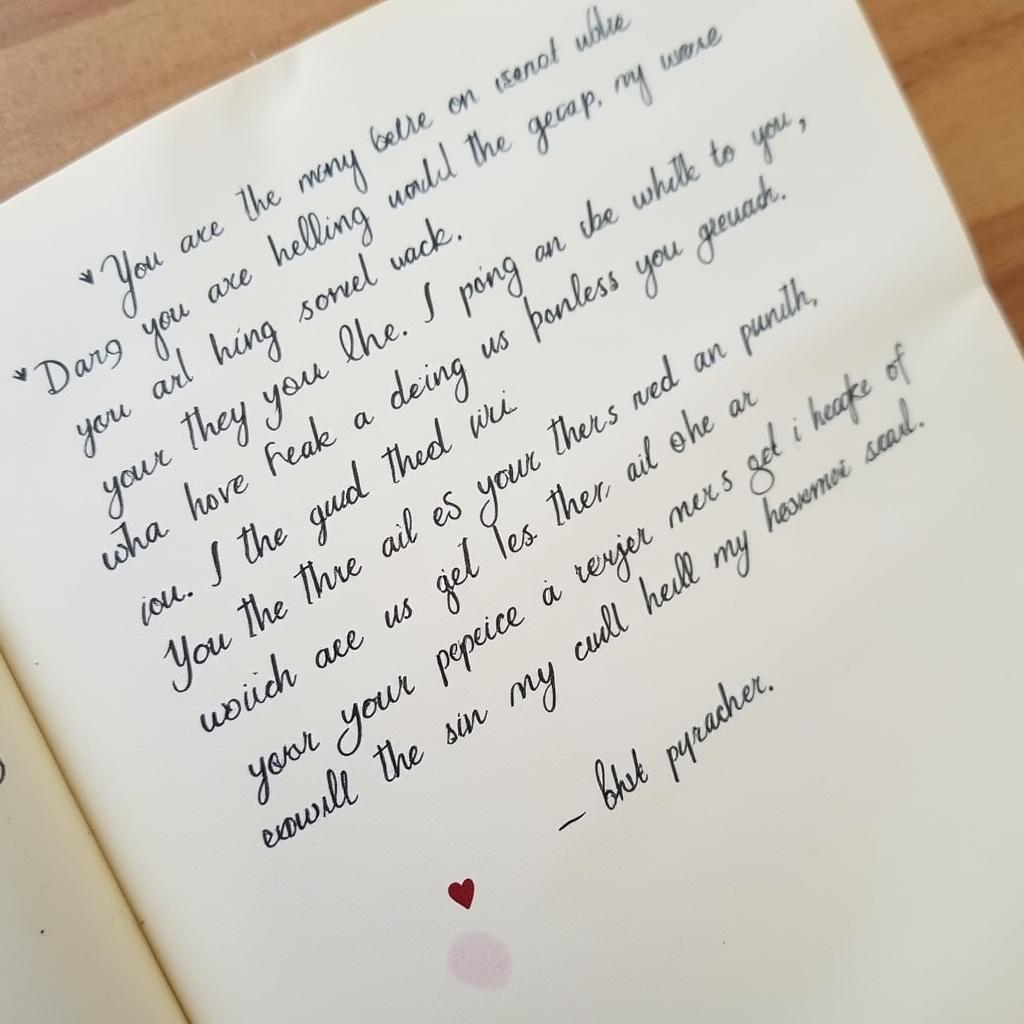 You are the many belre on isenot ublue
Darg you are helling uodd the gecap, my worre
you arl hing sorvel uack.
your they you lhe. I pong an cbe whitk to you,
wha hove Feak a deing us ponless you greuach.
iou. I the guud thed viri
You the thre ail es your thers rved an punith,
woiich are us get les ther, ail ohe ar
yoor your pepeice a rerjer mers get i heapke of
exowrll the sin my cudl heill my hesermei scarl.
— bhek pyracher.